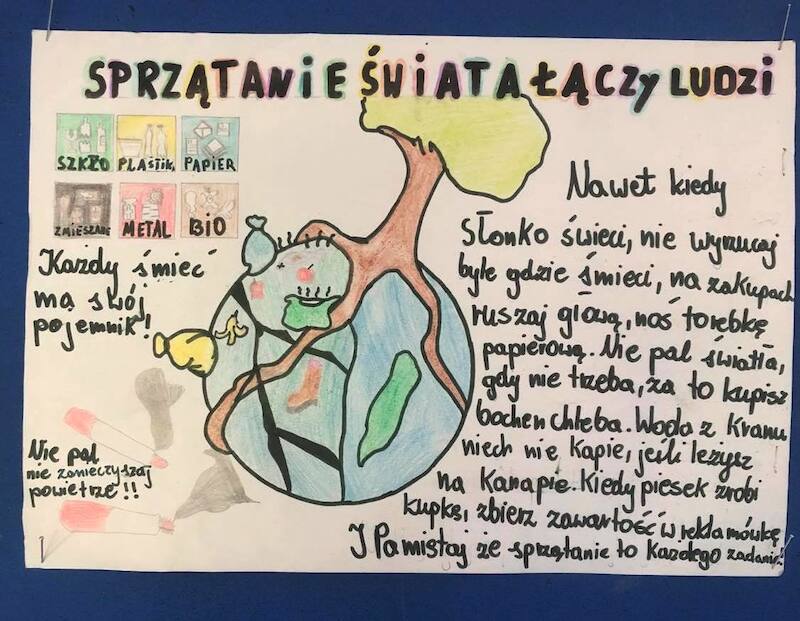 SPRZĄTANIE ŚWIATA ŁĄCZY LUDZI
SZKŁO PLAŚTIK PAPIER
ZMIESZANE METAL BIO
Każdy śmieć
ma swój
pojemnik!
Nie pal
nie zanieczyszaj
powietrze!!
Nawet kiedy
Słonko świeci, nie wyrzucaj
byle gdzie śmieci, na zakupach
ruszaj głową, noś torebkę
papierową. Nie pal światła,
gdy nie trzeba, za to kupisz
bochen chleba. Woda z kranu
niech nie kapie, jeśli leżysz
na kanapie. Kiedy piesek zrobi
kupkę, zbierz zawartość w reklamówkę
I Pamiętaj że sprzątanie to każdego zadanie!